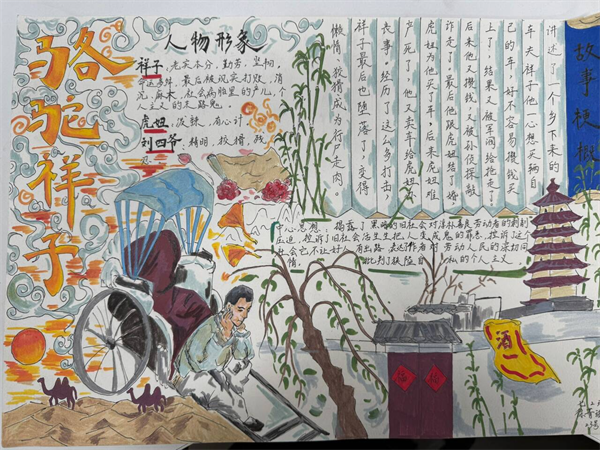 骆驼祥子
人物形象
祥子:老实本分,勤劳,坚韧,
命运多舛,最后被现实打败,消
沉,麻木,社会病胎里的产儿,个
人主义的末路鬼。
虎妞:泼辣,有心计
刘四爷:精明,狡猾,残
忍
故事梗概
讲述了一个乡下来的
车夫祥子他一心想买辆自
己的车,好不容易攒钱买
上了,结果又被军阀给拖走了,
后来他又攒钱又被孙侦探敲
诈走了,最后他跟虎妞结了婚
虎妞为他买了车,后来虎妞难
产死了,他又卖车给虎妞办
丧事,经历了这么多打击,
祥子最后也堕落了,变得
懒惰、狡猾成为行尸走肉。
中心思想:揭露了黑暗的旧社会对淳朴善良劳动者的剥削
压迫,控诉了旧社会活生生把人变成鬼的罪恶,控诉了旧
社会它不让好人有出路,表达作者对劳动人民的深切同
情,批判了狭隘自私的个人主义
酒
福